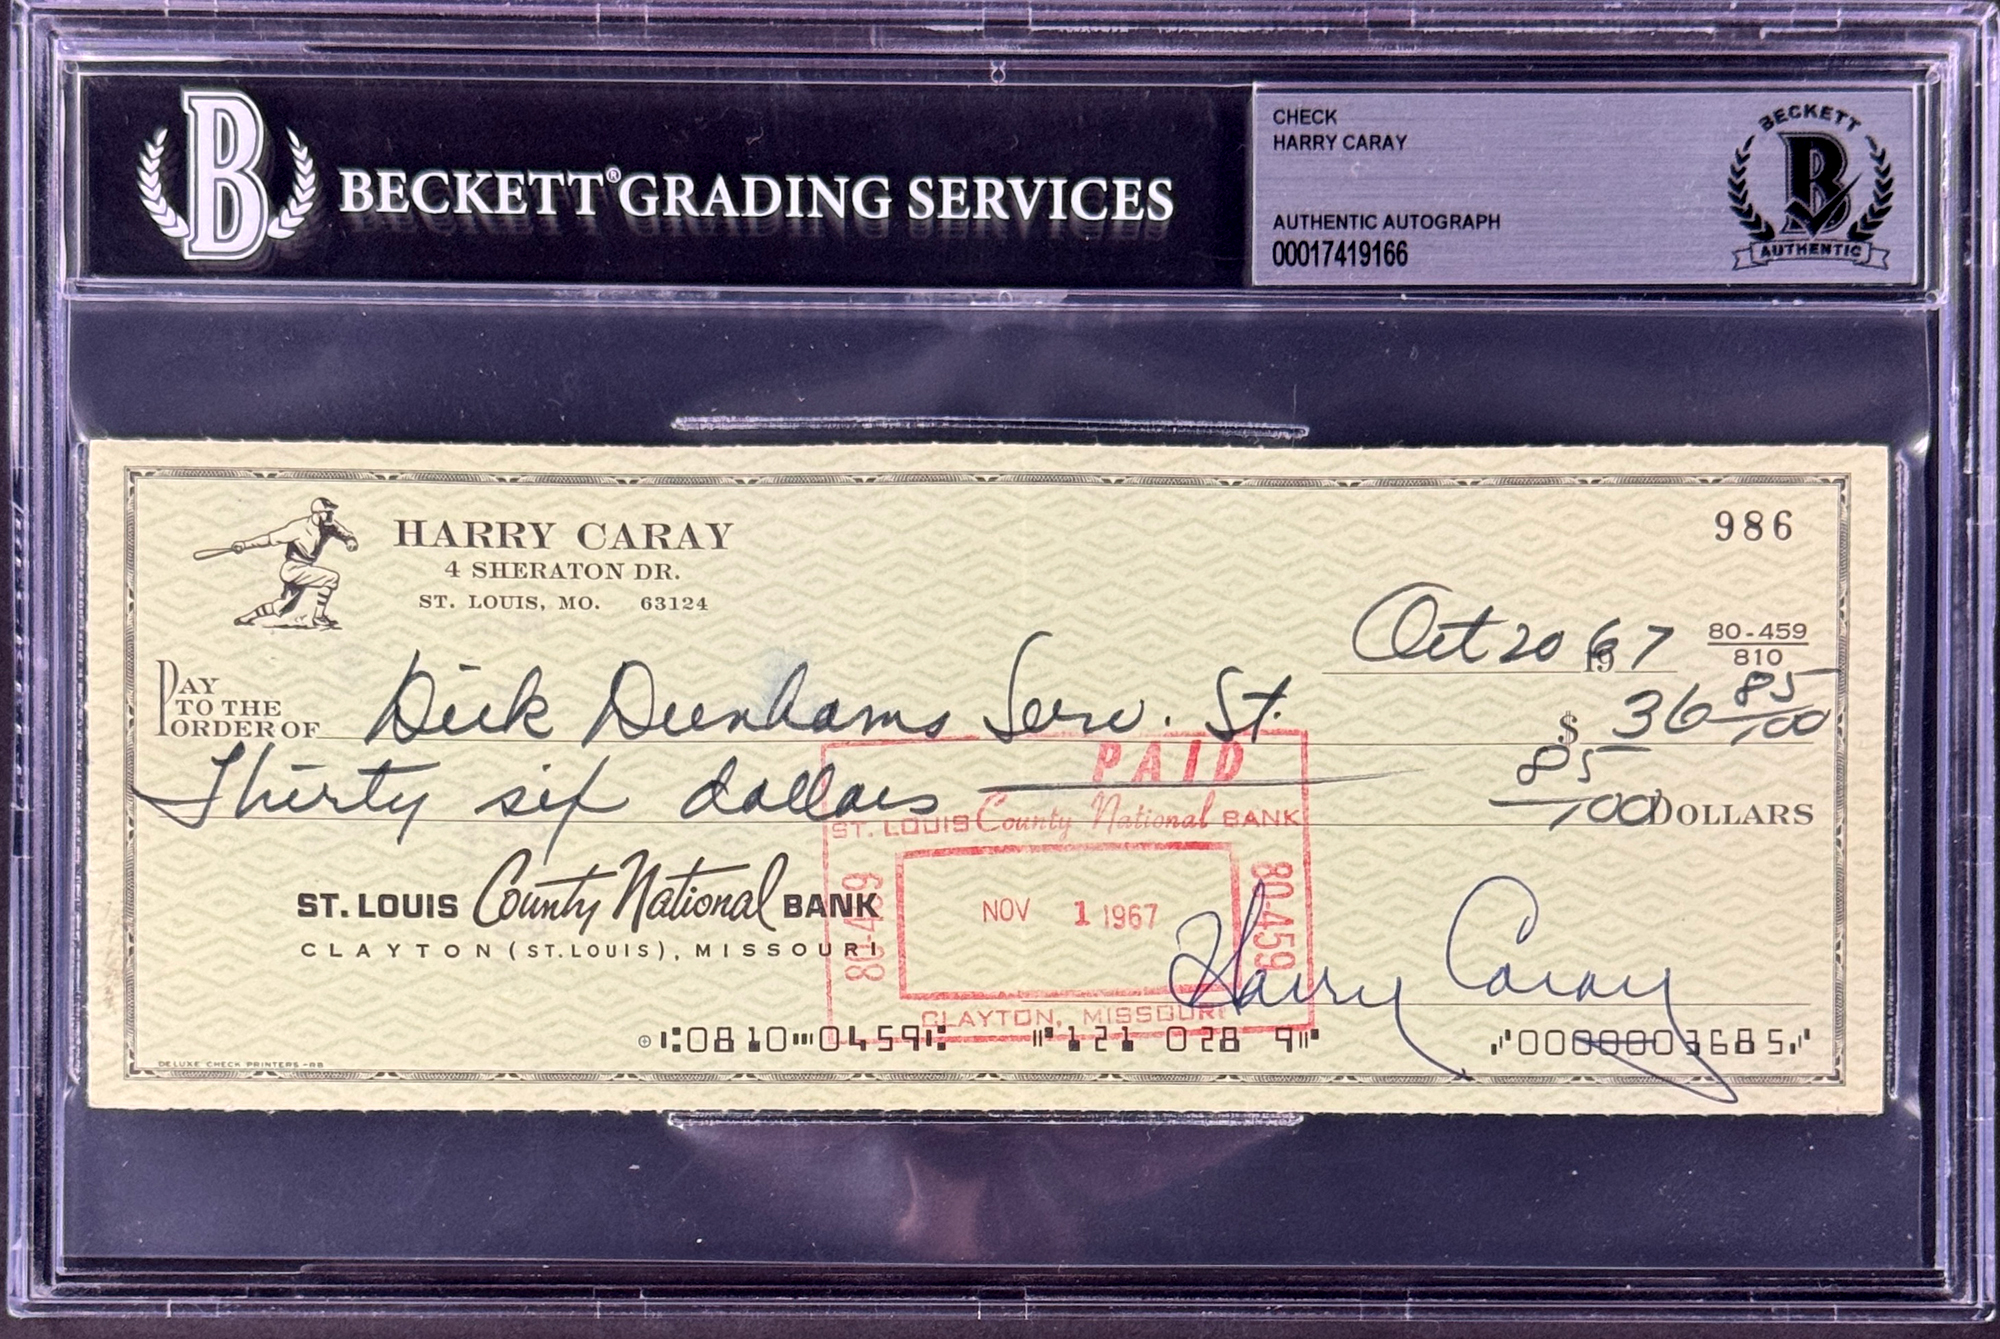 B
BECKETT® GRADING SERVICES
CHECK
HARRY CARAY
AUTHENTIC AUTOGRAPH
00017419166
BECKETT
B
AUTHENTIC
HARRY CARAY
4 SHERATON DR.
ST. LOUIS, MO. 63124
986
Oct 20 19 67
80-459
810
PAY
TO THE
ORDER OF
Dick Dunhams Serv. St.
$ 36 85/100
Thirty six dollars 85/100 DOLLARS
PAID
ST. LOUIS County National BANK
80-459
NOV 1 1967
80-459
CLAYTON, MISSOURI
ST. LOUIS County National BANK
CLAYTON (ST. LOUIS), MISSOURI
Harry Caray
⑆0810⑉0459⑆ ⑈121 028 9⑈ ⑇0000003685⑇
DELUXE CHECK PRINTERS-RB